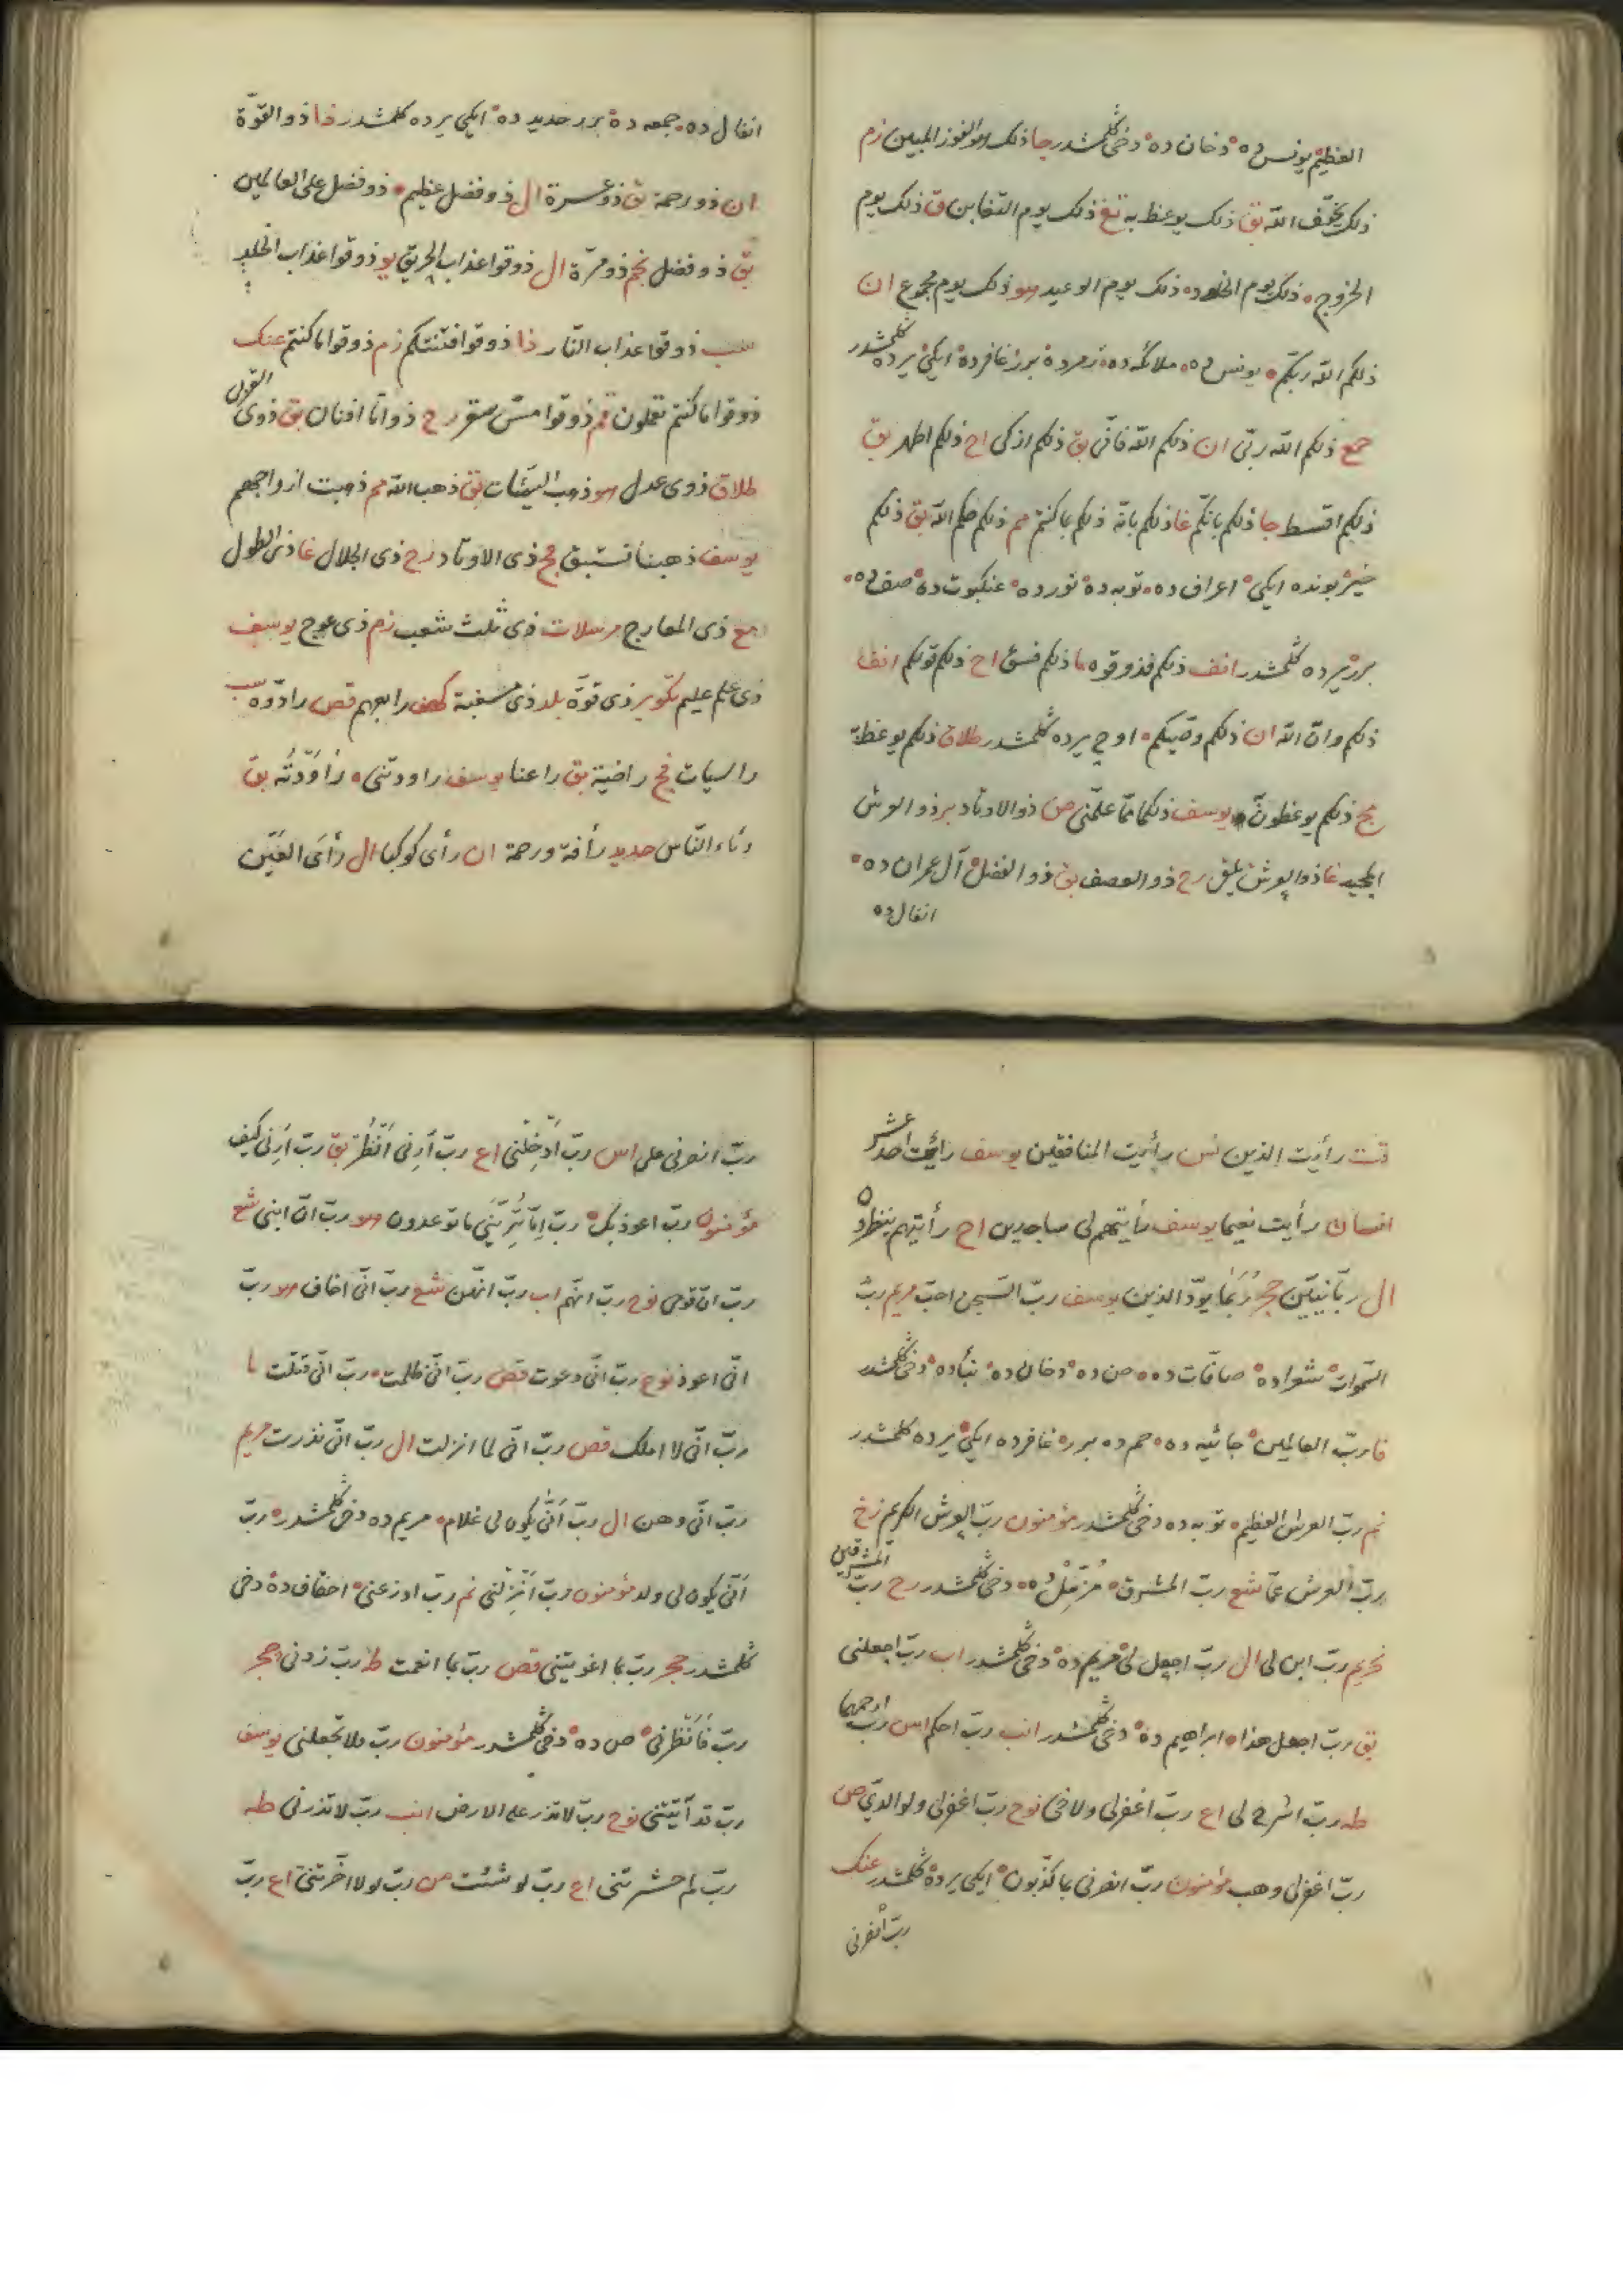 العظيم يونس ده ْ دخان ده ْ دخى گلمشدر جا ذلك هو الفوز المبين زم
ذلك يخوّف اللّه بق ذلك يوعظ به تغ ذلك يوم التغابن ق ذلك يوم
الخروج ْ ذلك يوم الخلود ْ ذلك يوم الوعيد هو ذلك يوم مجموع ان
ذلكم اللّه ربّكم ْ يونس ده ْ ملائكه ده ْ زمرده ْ برر غافرده ْ ايكى يرده گلمشدر
جمع ذلكم اللّه ربّى ان ذلكم اللّه فانّى بق ذلكم ازكى اح ذلكم اطهر بق
ذلكم اقسط جا ذلكم بانّكم غا ذلكم بانّه ذلكم بما كنتم مم ذلكم حكم اللّه بق ذلكم
خير بونده ايكى ْ اعراف ده ْ توبه ده ْ نورده ْ عنكبوت ده ْ صف ده ْ
برر يرده گلمشدر انف ذلكم فذوقوه ما ذلكم فسق اح ذلكم قولكم انف
ذلكم وانّ اللّه ان ذلكم وصّيكم ْ اوچ يرده گلمشدر طلاق ذلكم يوعظ به
مج ذلكم توعظون يوسف ذلكما ممّا علّمنى ص ذو الاوتاد بر ذو العرش
المجيد غا ذو العرش يلقى رح ذو العصف بق ذو الفضل ْ آل عمران ده ْ
انفال ده
انفال ده ْ جمعه ده ْ برر حديد ده ْ ايكى يرده گلمشدر ذا ذو القوّة
ان ذو رحمة بق ذو عسرة ال ذو فضل عظيم ْ ذو فضل على العالمين
بق ذو فضل نجم ذو مرّة ال ذوقوا عذاب الحريق يو ذوقوا عذاب الخلد
سب ذوقوا عذاب النّار ذا ذوقوا فتنتكم زم ذوقوا ما كنتم عنك
ذوقوا ما كنتم تعملون قم ذوقوا مسّ سقر رح ذواتا افنان بق ذوى القربى
طلاق ذوى عدل هو ذهب السيّئات بق ذهب اللّه مم ذهبت ازواجهم
يوسف ذهبنا نستبق فج ذى الاوتاد رح ذى الجلال غا ذى الطول
مع ذى المعارج مرسلات ذى ثلث شعب زم ذى عوج يوسف
ذى علم عليم تكوير ذى قوّة بلد ذى مسغبة كهف رابعهم قص رادّوه سب
راسيات فج راضية بق راعنا يوسف راودتنى ْ راودته بق
رئاء النّاس حديد رأفة ورحمة ان رأى كوكبا ال رأى العين
قت رأيت الذين نس رأيت المنافقين يوسف رأيت احد عشر
انسان رأيت نعيما يوسف رأيتهم لى ساجدين اح رأيتهم ينظرون
ال ربّانيّين حجر ربما يودّ الذين يوسف ربّ السّجن احبّ مريم ربّ
السّموات ْ شعراده ْ صافّات ده ْ ص ده ْ دخان ده ْ نبأده ْ دخى گلمشدر
فا ربّ العالمين ْ جاثيه ده ْ حم ده برر ْ غافرده ايكى ْ يرده گلمشدر
نم ربّ العرش العظيم ْ توبه ده دخى گلمشدر مؤمنون ربّ العرش الكريم زخ
ربّ العرش عمّا شع ربّ المشرق ْ مزّمّل ده ْ دخى گلمشدر رح ربّ المشرقين
تحريم ربّ ابن لى ال ربّ اجعل لى ْ مريم ده ْ دخى گلمشدر اب ربّ اجعلنى
بق ربّ اجعل هذا ْ ابراهيم ده ْ دخى گلمشدر انب ربّ احكم اس ربّ ارحمهما
طه ربّ اشرح لى اع ربّ اغفرلى ولاخى نوح ربّ اغفرلى ولوالدىّ ص
ربّ اغفرلى وهب مؤمنون ربّ انصرنى بما كذّبون ْ ايكى يرده گلمشدر عنك
ربّ انصرنى
ربّ انصرنى على اس ربّ أدخلنى اع ربّ أرنى انظر بق ربّ أرنى كيف
مؤمنون ربّ اعوذ بك ْ ربّ إمّا ترينّى ما توعدون هو ربّ انّ ابنى شع
ربّ انّ قومى نوح ربّ انّهم اب ربّ انّهنّ شع ربّ انّى اخاف هو ربّ
انّى اعوذ نوح ربّ انّى دعوت قص ربّ انّى ظلمت ْ ربّ انّى قتلت ما
ربّ انّى لا املك قص ربّ انّى لما انزلت ال ربّ انّى نذرت مريم
ربّ انّى وهن ال ربّ أنّى يكون لى غلام ْ مريم ده دخى گلمشدر ْ ربّ
أنّى يكون لى ولد مؤمنون ربّ أنزلنى نم ربّ اوزعنى ْ احقاف ده ْ دخى
گلمشدر حجر ربّ بما اغويتنى قص ربّ بما انعمت طه ربّ زدنى حجر
ربّ فأنظرنى ْ ص ده ْ دخى گلمشدر مؤمنون ربّ فلا تجعلنى يوسف
ربّ قد آتيتنى نوح ربّ لا تذر على الارض انب ربّ لا تذرنى طه
ربّ لم حشرتنى اع ربّ لو شئت من ربّ لولا اخّرتنى اع ربّ